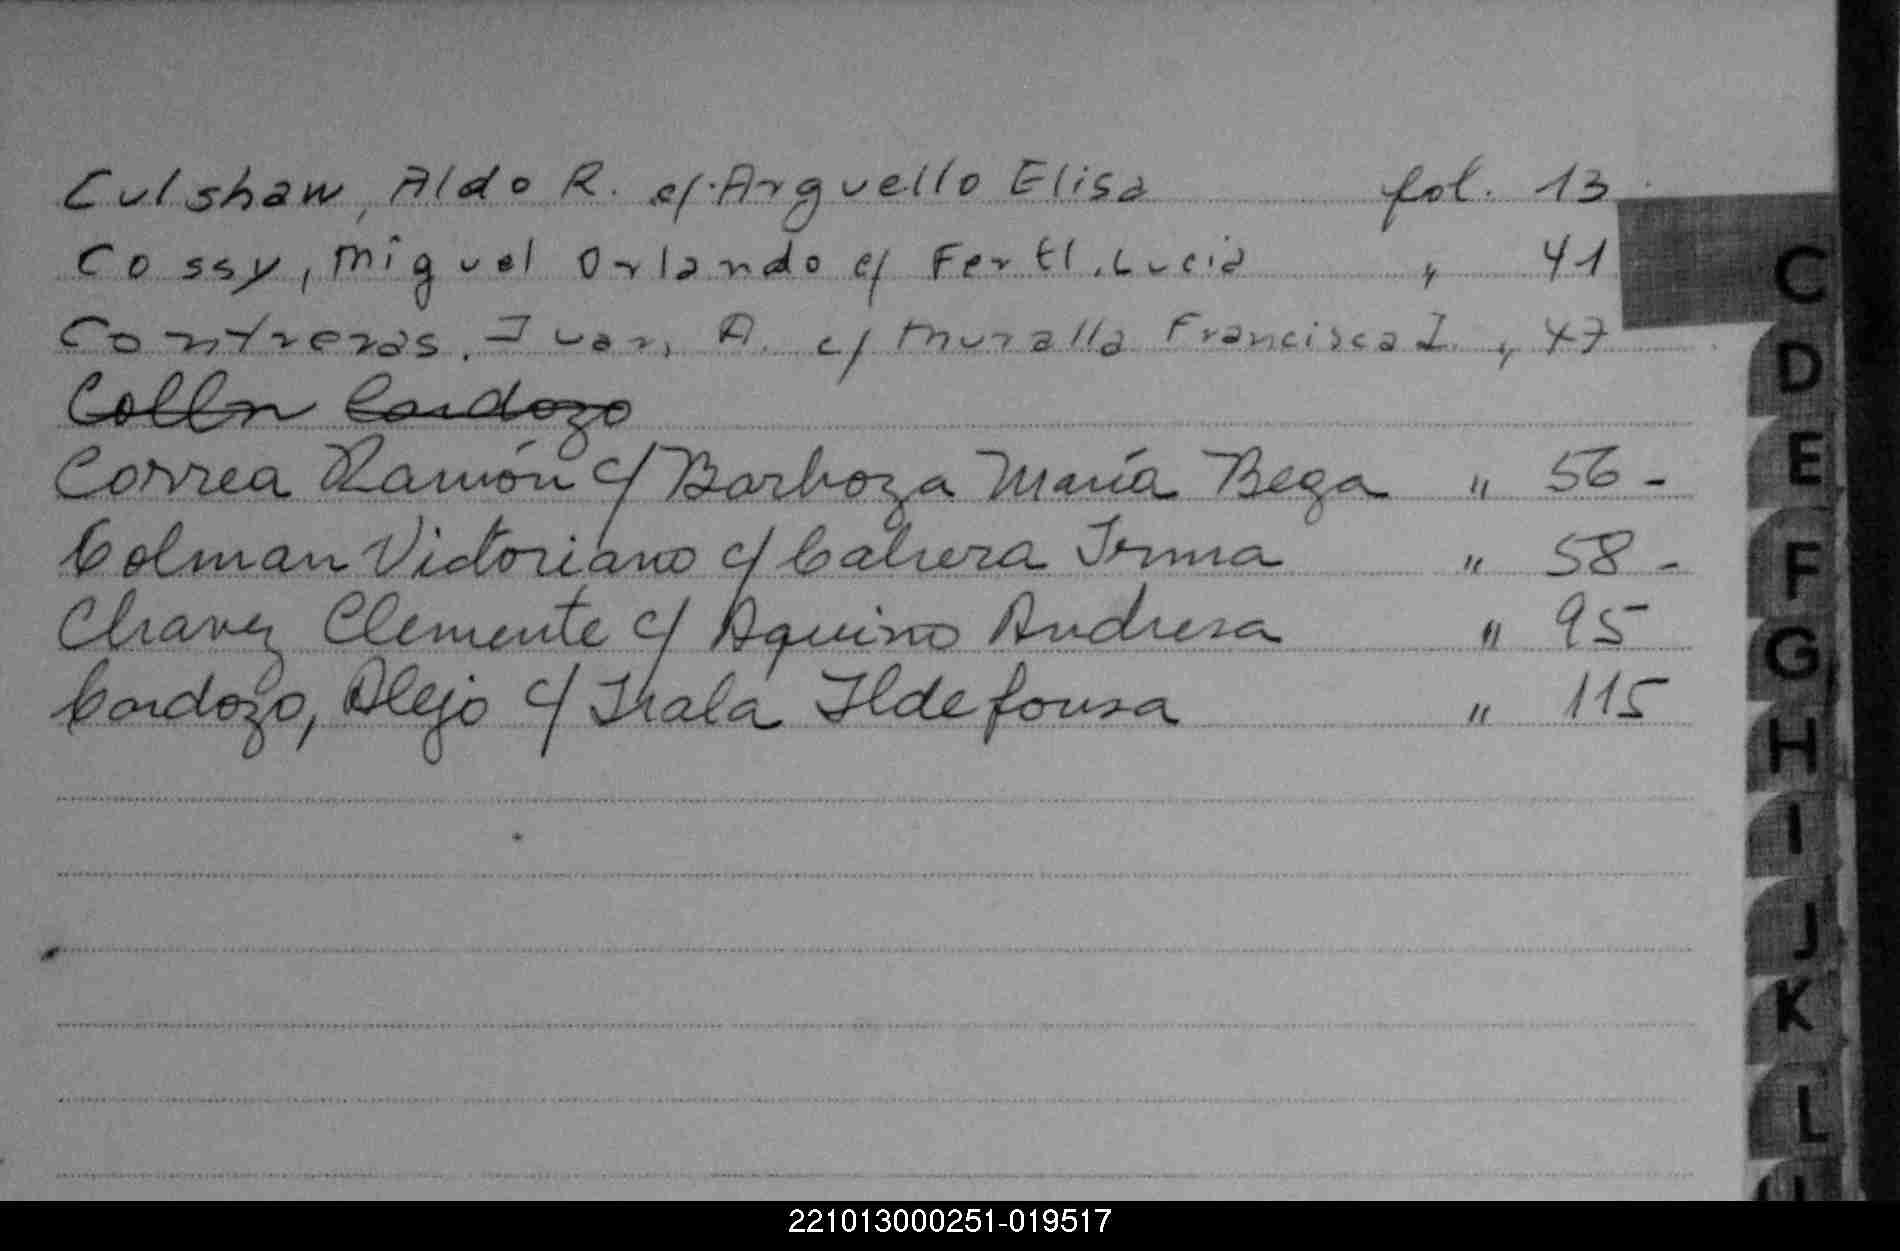 Culshaw, Aldo R. c/. Arguello Elisa fol. 13
Cossy, Miguel Orlando c/ Fertl, Lucia " 41
Contreras, Juan, A. c/ Muralla Francisca I. " 47
Cardozo
Correa Ramón c/ Barboza María Bega " 56 -
Colman Victoriano c/ Cabrera Irma " 58 -
Chavez Clemente c/ Aquino Andresa " 95
Cardozo, Alejo c/ Irala Ildefonsa " 115
C
D
E
F
G
H
I
J
K
L
221013000251-019517